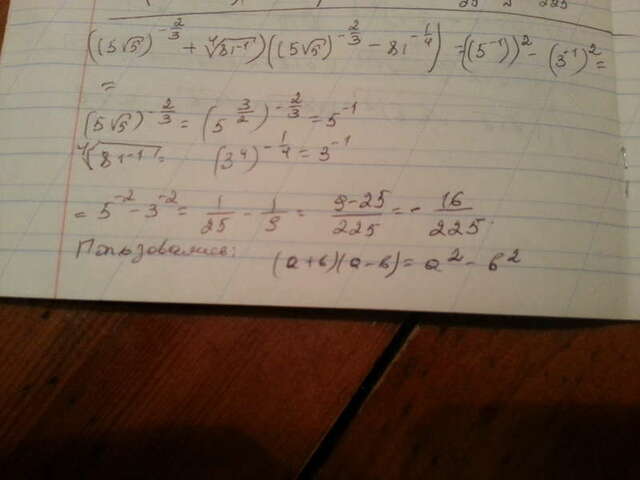 25 2 225
((5√5)^{-2/3} + ⁴√(81⁻¹))((5√5)^{-2/3} - 81^{-1/4}) = ((5⁻¹))² - (3⁻¹)² =
=
(5√5)^{-2/3} = (5^{3/2})^{-2/3} = 5⁻¹
⁴√(81⁻¹) = (3⁴)^{-1/4} = 3⁻¹
= 5⁻² - 3⁻² = 1/25 - 1/9 = (9-25)/225 = - 16/225
Пользовались: (a+b)(a-b) = a² - b²